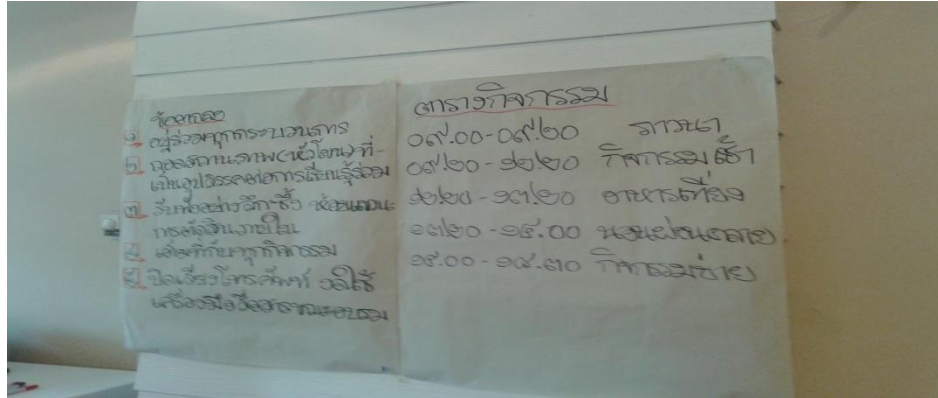 ข้อตกลง
๑ อยู่ร่วมทุกกระบวนการ
๒ ถอดสถานภาพ(หัวโขน)ที่-
เป็นอุปสรรคต่อการเรียนรู้ร่วม
๓ รับฟังอย่างลึกซึ้ง ห้อยแขวน
การตัดสินภายใน
๔ เต็มที่กับทุกกิจกรรม
๕ ปิดเสียงโทรศัพท์ งดใช้
เครื่องมือสื่อสารขณะอบรม
ตารางกิจกรรม
๐๙.๐๐-๐๙.๒๐ ภาวนา
๐๙.๒๐-๑๒.๒๐ กิจกรรมเช้า
๑๒.๒๐-๑๓.๒๐ อาหารเที่ยง
๑๓.๒๐-๑๔.๐๐ นอนผ่อนคลาย
๑๔.๐๐-๑๘.๓๐ กิจกรรมบ่าย